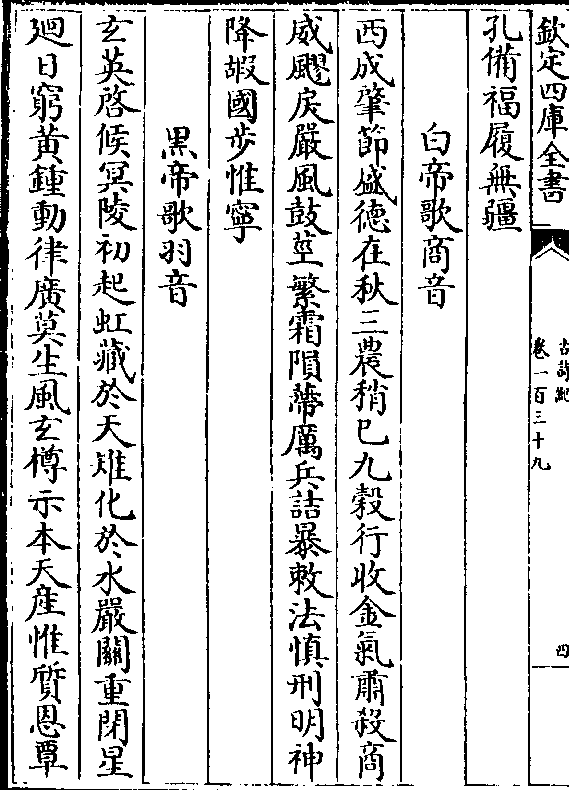 欽定四庫全書
古詩紀
卷一百三十九
四
孔備福履無疆
白帝歌商音
西成肇節盛德在秋三農稍已九穀行收金氣肅殺商
威飂戾嚴風鼓莖繁霜隕蔕厲兵詰暴敕法慎刑明神
降嘏國步惟寧
黑帝歌羽音
玄英啓候冥陵初起虹藏於天雉化於水嚴關重閉星
廻日窮黃鍾動律廣莫生風玄樽示本天産惟質恩覃